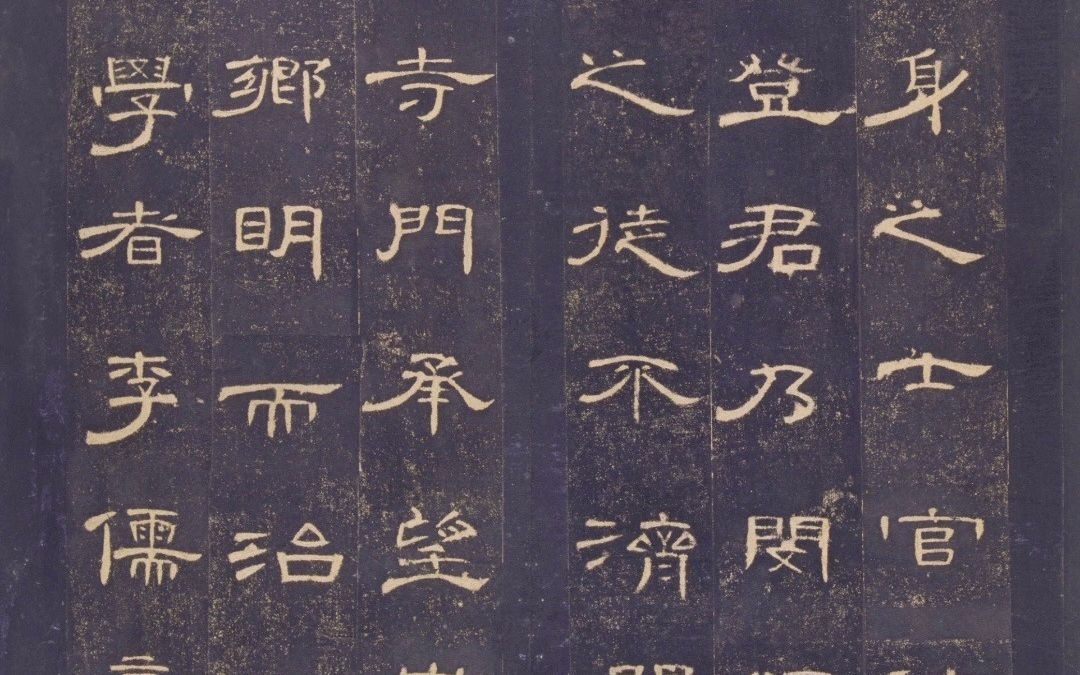 身之士官
登君乃閔
之徒不濟
寺門承望
鄉明而治
學者李儒